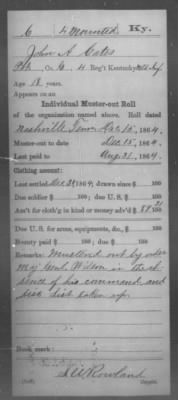 C 4 Mounted Ky.
John A Cates
Pvt., Co. G, 4 Reg't Kentucky Mtd Inf.
Age 18 years.
Appears on an
Individual Muster-out Roll
of the organization named above. Roll dated
Nashville Tenn Dec 15, 1864.
Muster-out to date Dec 15, 1864.
Last paid to Aug 31, 1864.
Clothing account:
Last settled Dec 31, 1864; drawn since $ 100
Due soldier $ 100; due U. S. $ 100
Am't for cloth'g in kind or money adv'd $ 100
Due U. S. for arms, equipments, &c., $ 100
Bounty paid $ 100; due $ 100
Remarks: Mustered out by order
Genl. Wilson in the ab
sence of his command and
disc list taken up
Book mark:
Rowland
Copyist.